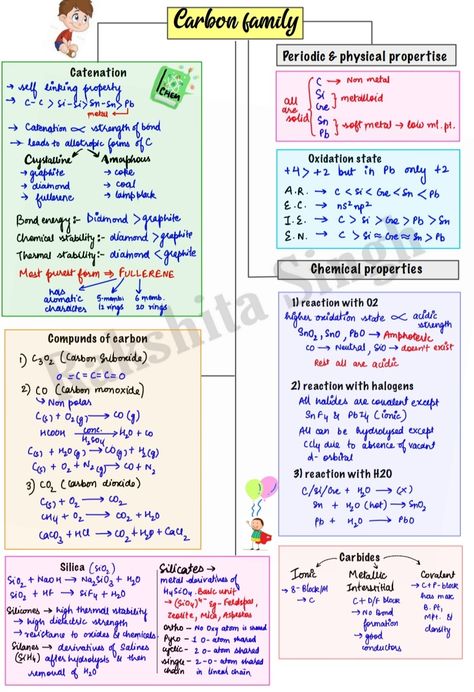 Carbon family
Catenation
→ self linking property
→ C-C > Si-Si > Sn-Sn > Pb
metal
→ Catenation ∝ strength of bond
→ leads to allotropic forms of C
Crystalline Amorphous
→ graphite → coke
→ diamond → coal
→ fullerene → lampblack
Bond energy:- Diamond > graphite
Chemical stability:- diamond > graphite
Thermal stability:- diamond < graphite
Most purest form → FULLERENE
has aromatic characters
5 memb. 12 rings
6 memb. 20 rings
CHEM
Periodic & physical propertise
all are solid
C → Non metal
Si
Ge
metalloid
Sn
Pb
soft metal → low ml. pt.
Oxidation state
+4 > +2 but in Pb only +2
A.R. → C < Si < Ge < Sn < Pb
E.C. → ns²np²
I.E. → C > Si > Ge > Pb > Sn
E.N. → C > Si ≈ Ge ≈ Sn > Pb
Chemical properties
1) reaction with O2
higher oxidation state ∝ acidic strength
SnO2, SnO, PbO → Amphoteric
CO → Neutral, SiO → doesn't exist
Rest all are acidic
2) reaction with halogens
All halides are covalent except
SnF4 & PbI4 (ionic)
All can be hydrolysed except
CCl4 due to absence of vacant
d- orbital
3) reaction with H2O
C/Si/Ge + H2O → (X)
Sn + H2O (hot) → SnO2
Pb + H2O → PbO
Compunds of carbon
1) C3O2 (Carbon Suboxide)
O=C=C=C=O
2) CO (Carbon monoxide)
↳ Non polar
C(s) + O2(g) → CO (g)
HCOOH conc. H2SO4 → H2O + CO
C(s) + H2O (g) → CO(g) + H2(g)
C(s) + O2 + N2(g) → CO + N2
3) CO2 (Carbon dioxide)
C(s) + O2 → CO2
CH4 + O2 → CO2 + H2O
CaCO3 + HCl → CO2 + H2O + CaCl2
Silica (SiO2)
SiO2 + NaOH → Na2SiO3 + H2O
SiO2 + HF → SiF4 + H2O
Silicones → high thermal stability
→ high dielectric strength
→ resistance to oxides & chemicals
Silanes → derivatives of Salines
(SiH4) after hydrolysis & then
removal of H2O
Silicates →
metal derivatives of
H4SiO4. Basic unit
→ (SiO4)4- Eg- Feldspal,
Zeolite, Mica, Asbestos
ortho - No Oxy atom is shared
Pyro - 1 O-atom shared
cyclic - 2 O-atom shared
single chain - 2-O-atom shared in linear chain
Carbides
Ionic
→ S-Block/H
→ C
Metallic
Interstitial
C + D/F block
→ No Bond formation
→ good conductors
Covalent
→ C + P-block
has max
B. Pt,
MPt. &
density
Rakshita Singh